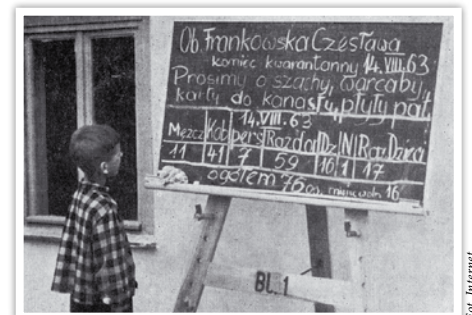 Ob. Frankowska Czesława
koniec kwarantanny 14.VIII.63
Prosimy o szachy, warcaby,
karty do kanasty, płyty pat.
14.VIII.63
Mężcz Kob pers Raz dor Dz N Raz Dzieci
11 41 7 59 16 1 17
ogółem 76 os. 16
BL. 1
fot. Internet